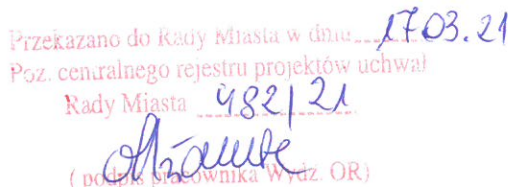 Przekazano do Rady Miasta w dniu 17.03.21
Poz. centralnego rejestru projektów uchwał
Rady Miasta 482/21
( podpis pracownika Wydz. OR)